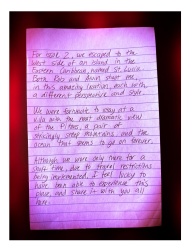 For part 2, we escaped to the
west side of an island in the
Eastern Caribbean, named St. Lucia.
Both Rob and stayed here
in this amazing location, each with
a different perspective and style.
We were fortunate to stay at a
villa with the most dramatic view
of the Pitons, a pair of
strikingly steep mountains and the
ocean that seems to go on forever.
Although we were only here for a
short time, due to travel restrictions
being implemented, I feel lucky to
have been able to experience this
place, and share it with you all
here.